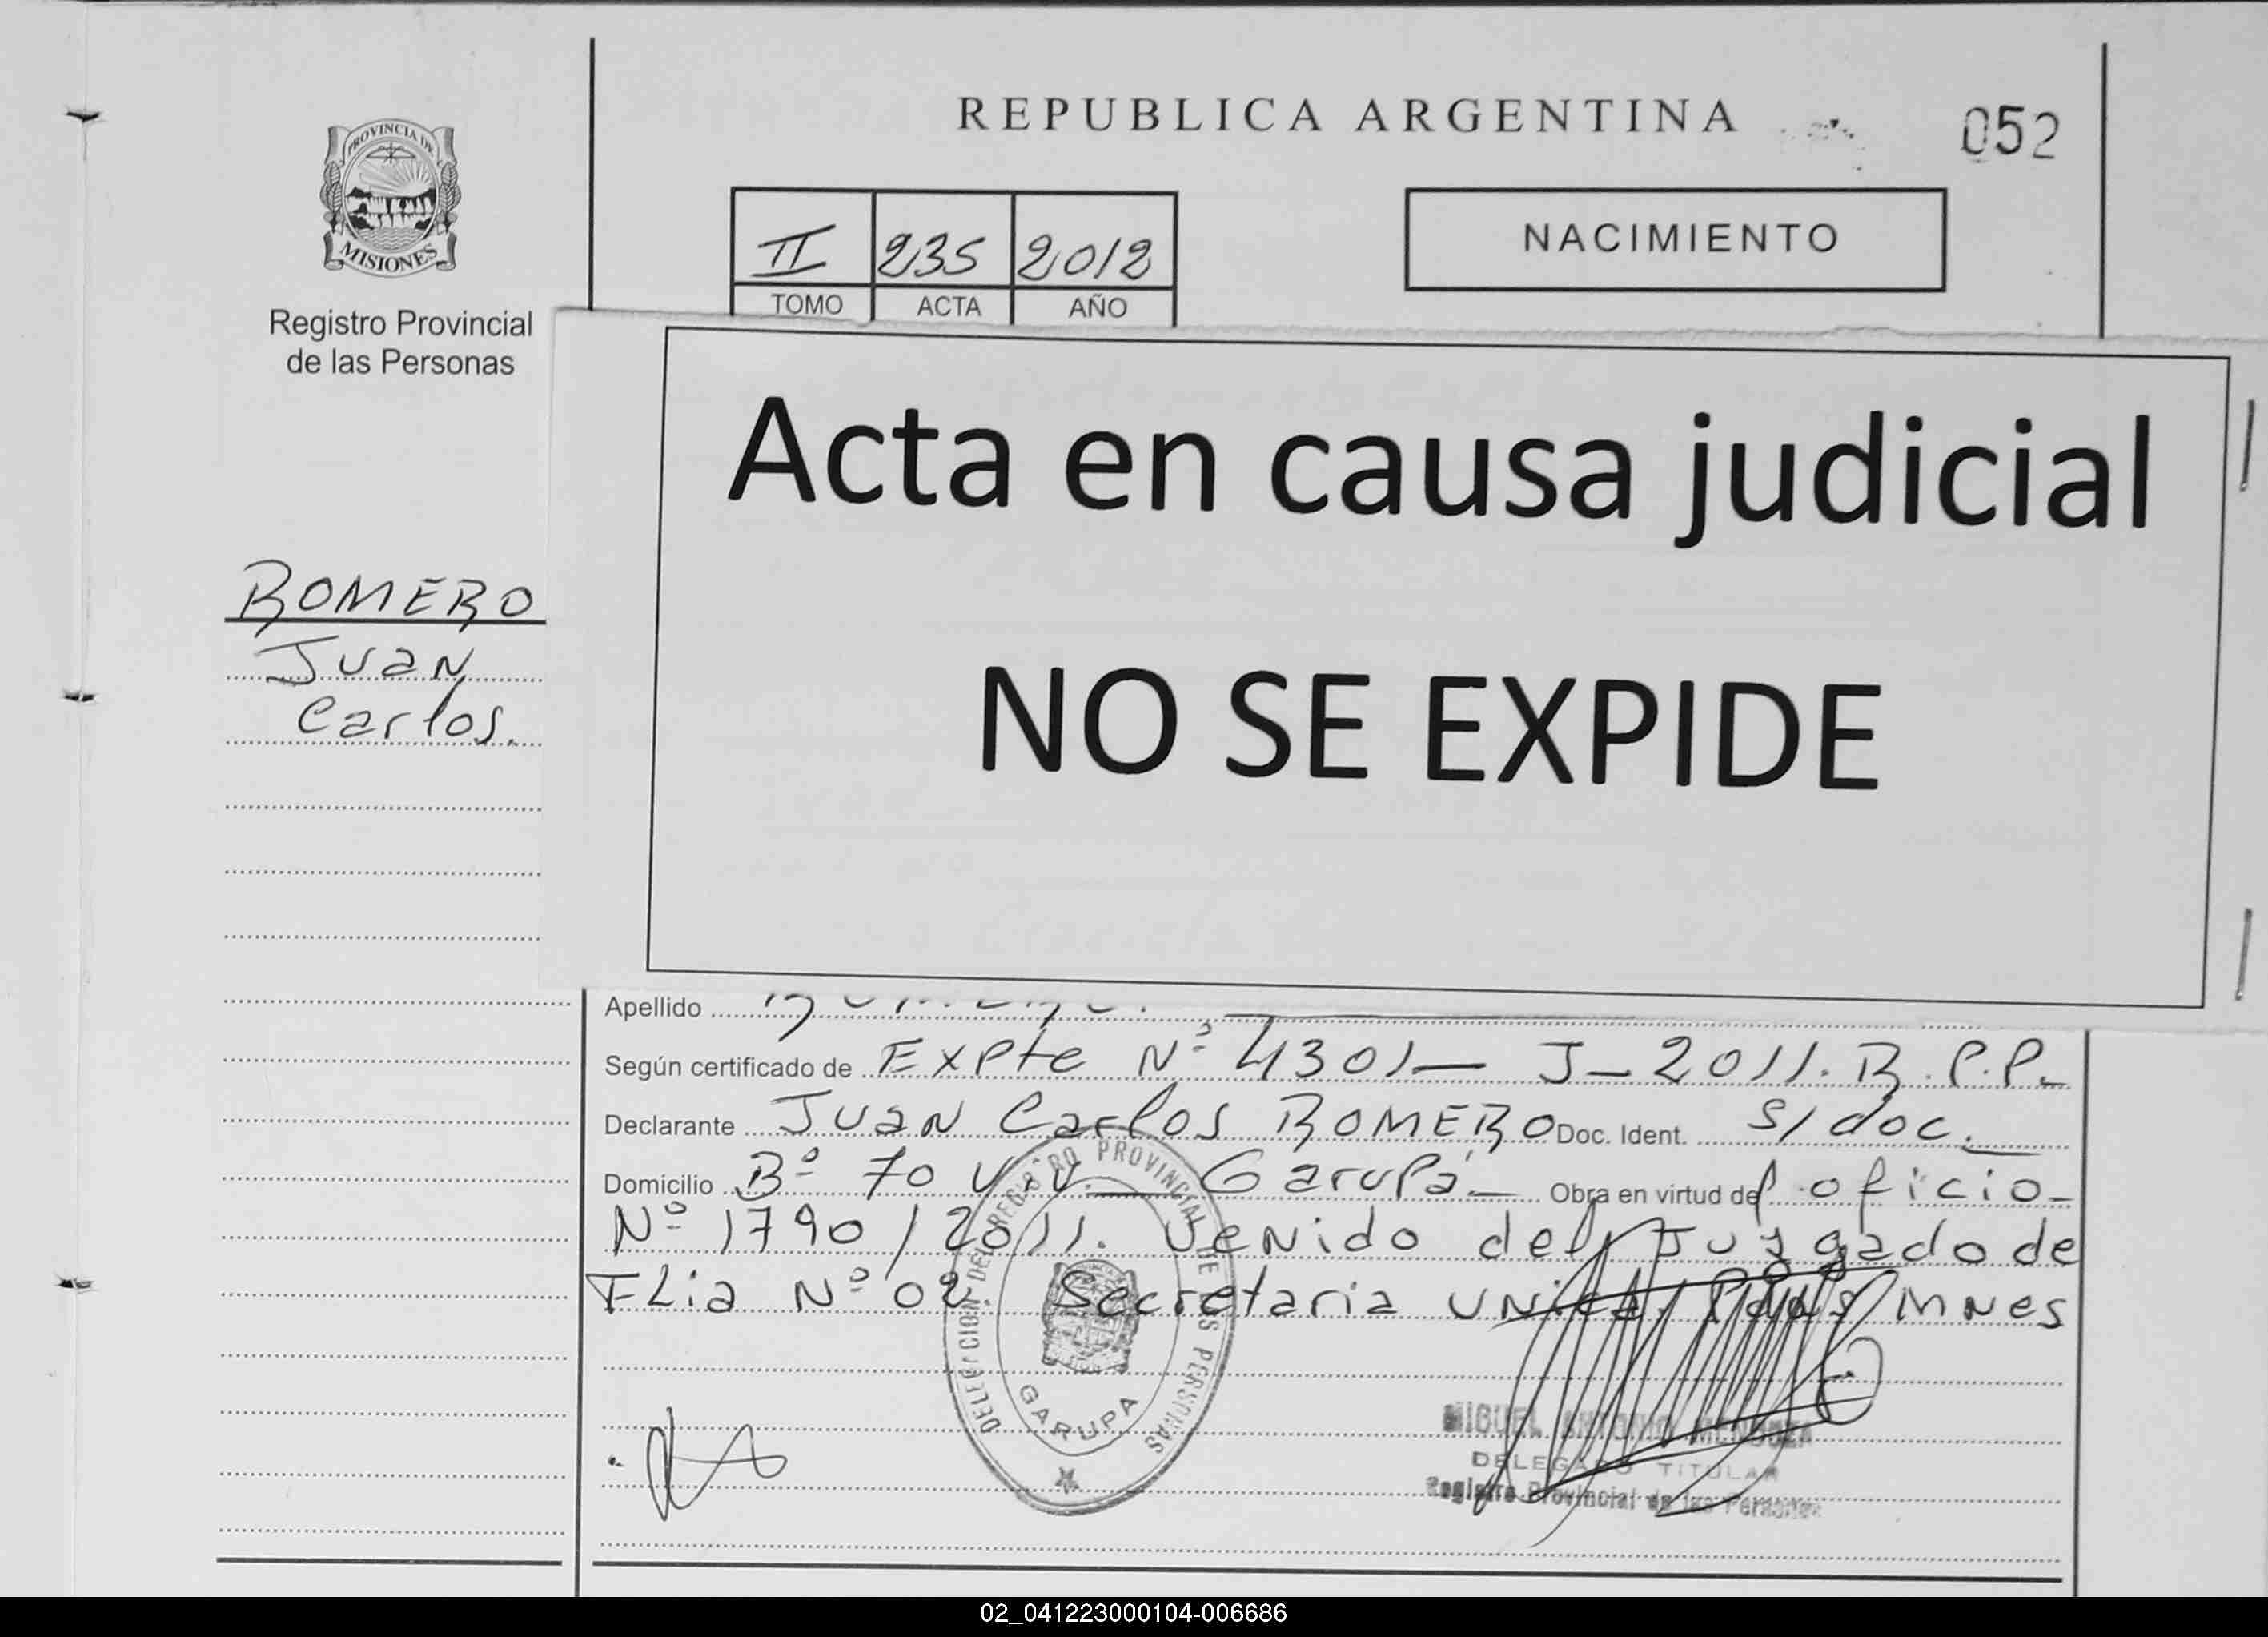 REPUBLICA ARGENTINA
052
PROVINCIA DE
MISIONES
Registro Provincial
de las Personas
II 235 2012
TOMO ACTA AÑO
NACIMIENTO
Acta en causa judicial
NO SE EXPIDE
ROMERO
Juan
Carlos.
Apellido
Según certificado de Expte Nº 4301- J-2011. R.P.P.
Declarante Juan Carlos ROMERO Doc. Ident. S/doc.
Domicilio Bº 70 viv. Garupá Obra en virtud del oficio
Nº 1790/2011. venido del Juzgado de
FLia Nº 02. Secretaria UNica. Pdas/MNes
DELEGACION DEL REGISTRO PROVINCIAL DE LAS PERSONAS
GARUPA
MIGUEL ANTONIO MENDOZA
DELEGADO TITULAR
Registro Provincial de las Personas
02_041223000104-006686